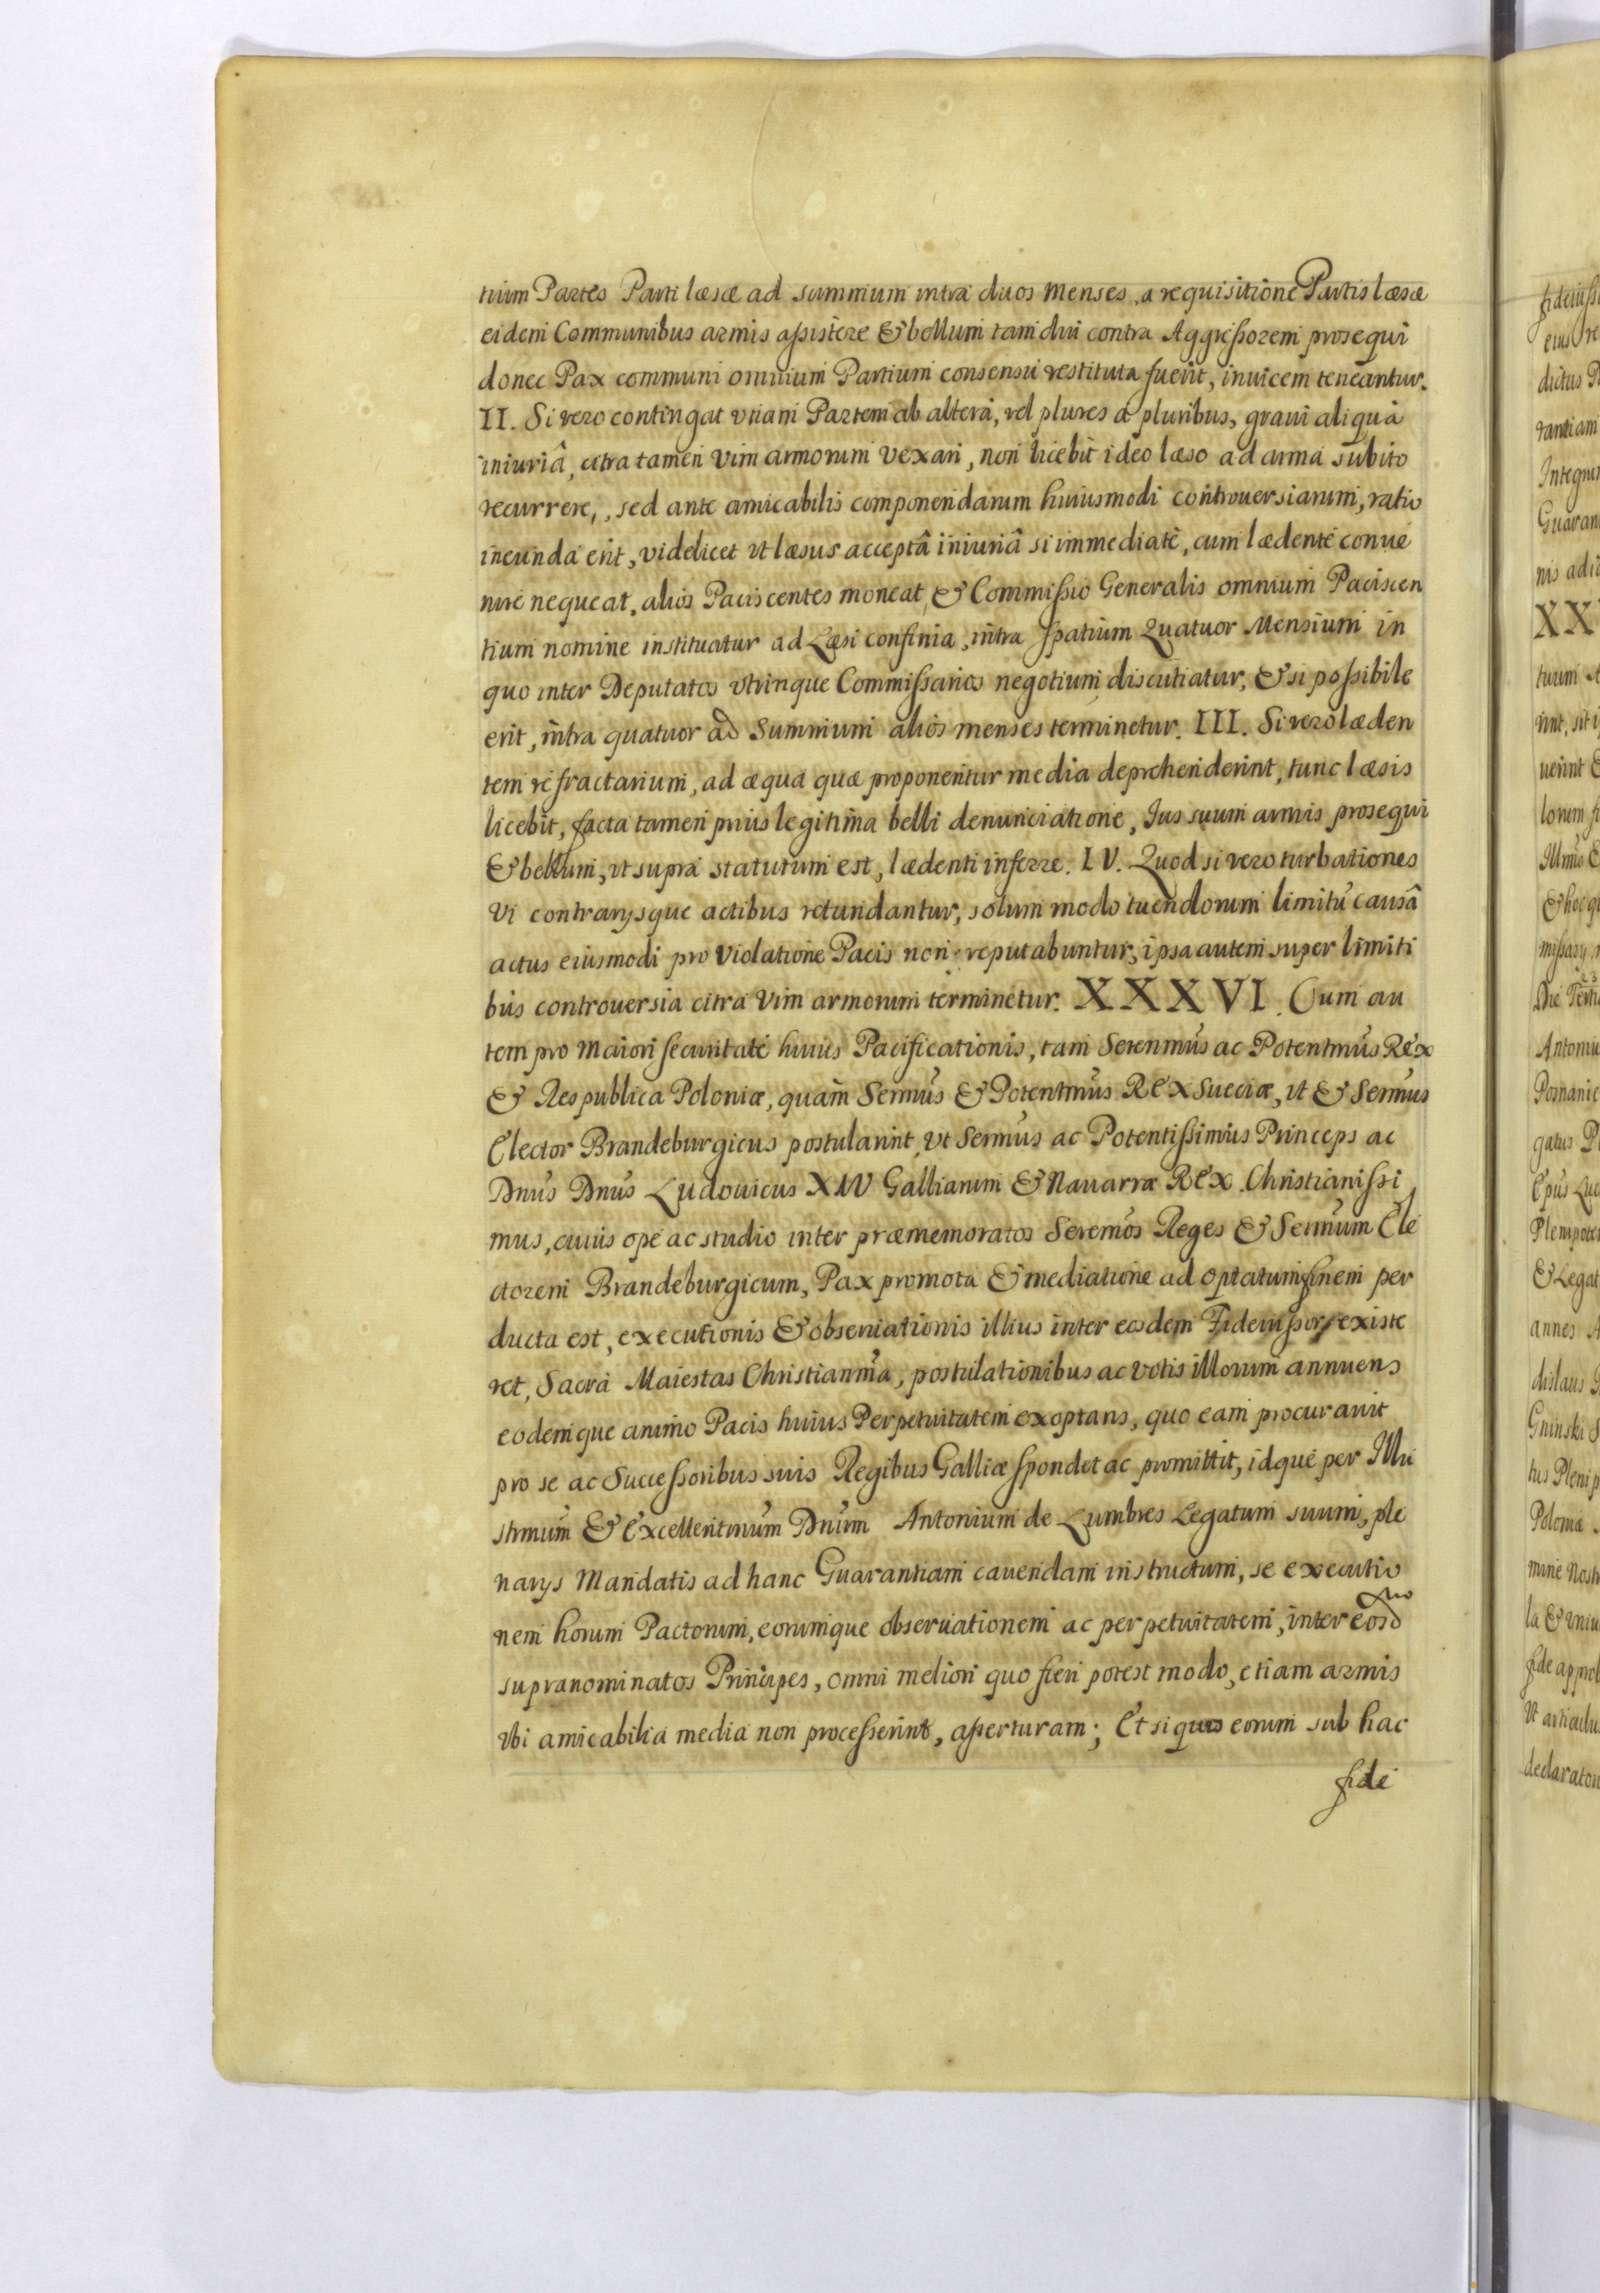 tium Partes Parti læsæ ad summum intra duos Menses, a requisitione Partis læsæ
eidem Communibus armis assistere & bellum tam diu contra Aggressorem prosequi
donec Pax communi omnium Partium consensu restituta fuerit, inuicem teneantur.
II. Si vero contingat vnam Partem ab altera, vel plures a pluribus, graui aliqua
iniuriâ, citra tamen vim armorum vexari, non licebit ideo læso ad arma subito
recurrere, sed ante amicabilis componendarum huiusmodi controuersiarum, ratio
ineunda erit, videlicet vt læsus acceptâ iniuriâ si immediatè, cum lædente conue
nire nequeat, alios Paciscentes moneat, & Commissio Generalis omnium Paciscen
tium nomine instituatur ad Læsi confinia, intra spatium Quatuor Mensium in
quo inter Deputatos vtrinque Commissarios negotium discutiatur, & si possibile
erit, intra quatuor ad Summum alios menses terminetur. III. Si vero læden
tem refractarium, ad æqua quæ proponentur media deprehenderint, tunc læsis
licebit, facta tamen prius legitima belli denunciatione, Jus suum armis prosequi
& bellum, vt supra statutum est, lædenti inferre. IV. Quod si vero turbationes
vi contrarysque actibus retundantur, solum modo tuendorum limitu causâ
actus eiusmodi pro violatione Pacis non reputabuntur, ipsa autem super limiti
bus controuersia citra vim armorum terminetur. XXXVI. Cum au
tem pro Maiori securitate huius Pacificationis, tam Serenmus ac Potentmus Rex
& Respublica Poloniæ, quàm Sermus & Potentmus Rex Sueciæ, vt & Sermus
Elector Brandeburgicus postularint, vt Sermus ac Potentissimus Princeps ac
Dnus Dnus Ludouicus XIV Galliarum & Nauarræ Rex Christianissi
mus, cuius ope ac studio inter præmemoratos Seremos Reges & Sermum Ele
ctorem Brandeburgicum, Pax promota & mediatione ad optatum finem per
ducta est, executionis & obseruationis illius inter eosdem Fideiussor existe
ret, Sacra Maiestas Christianma, postulationibus ac votis illorum annuens
eodemque animo Pacis huius Perpetuitatem exoptans, quo eam procurauit
pro se ac Successoribus suis Regibus Galliæ spondet ac promittit, idque per Illu
strmum & Excellentmum Dnum Antonium de Lumbres Legatum suum, ple
narys Mandatis ad hanc Guarantiam cauendam instructum, se executio
nem horum Pactorum, eorumque obseruationem ac perpetuitatem, inter eosd
supranominatos Principes, omni meliori quo fieri potest modo, etiam armis
vbi amicabilia media non processerint, asserturam; Et si quis eorum sub hac
fide